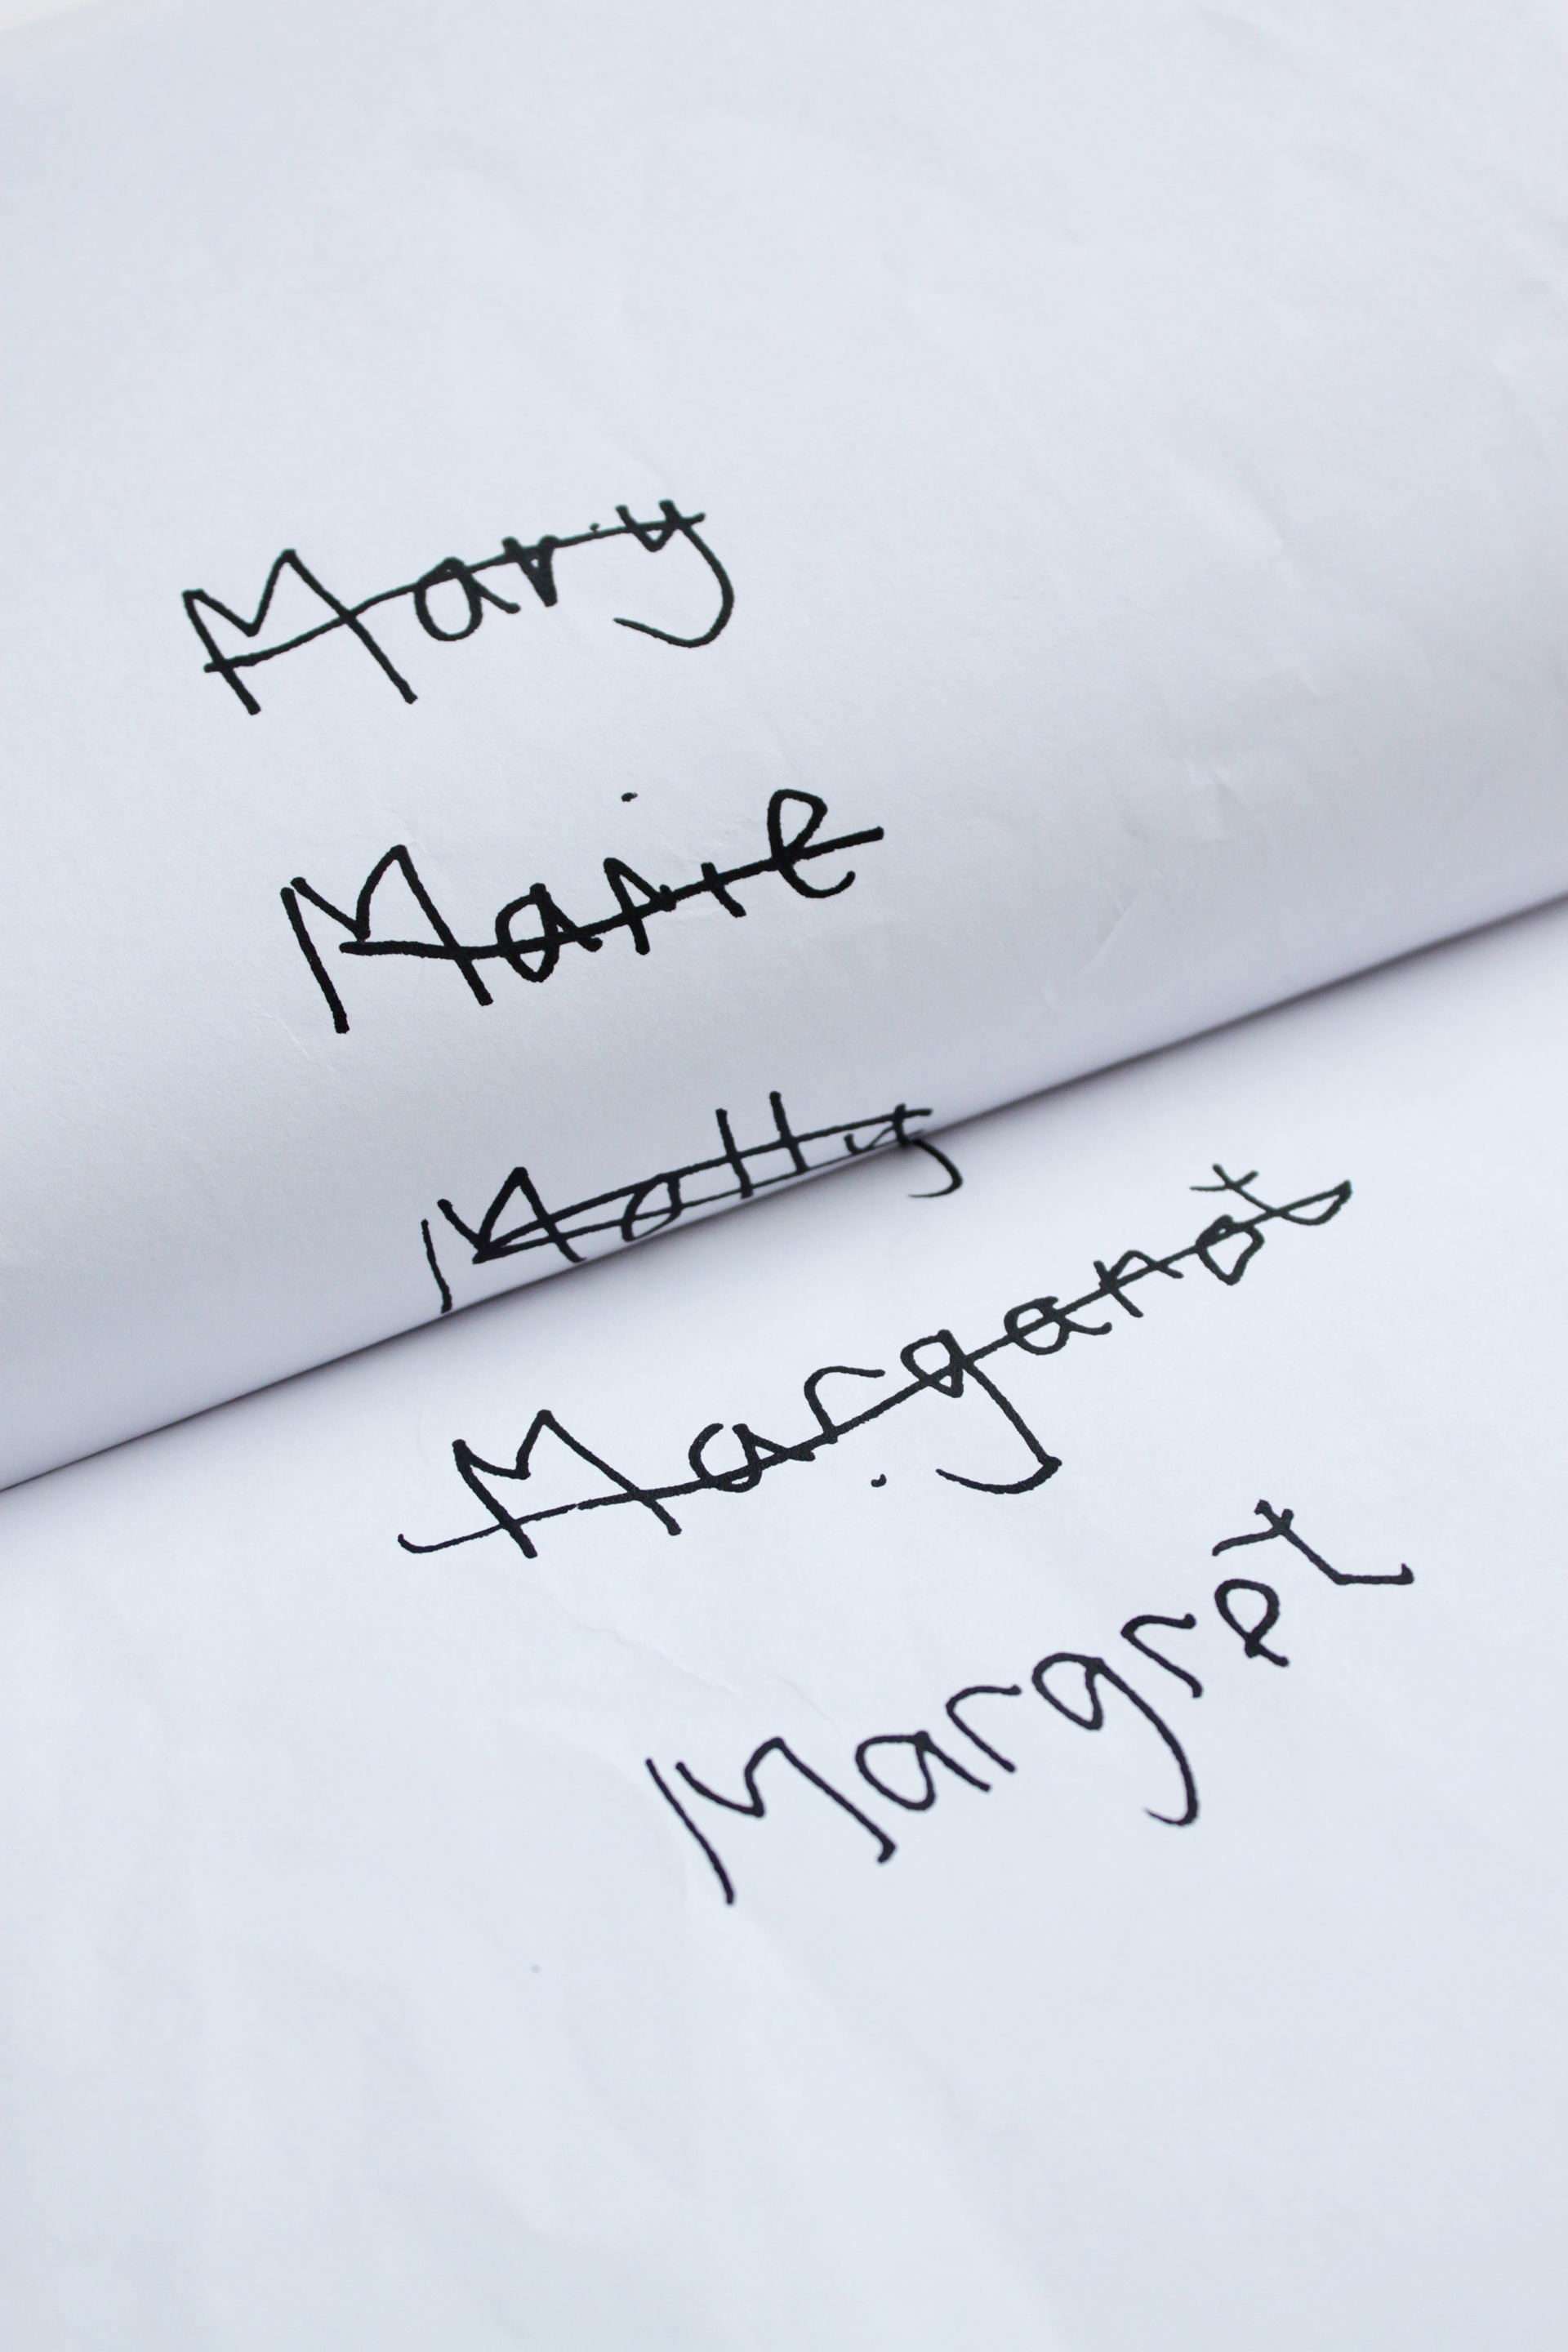 Mary
Marie
Molly
Margaret
Margret